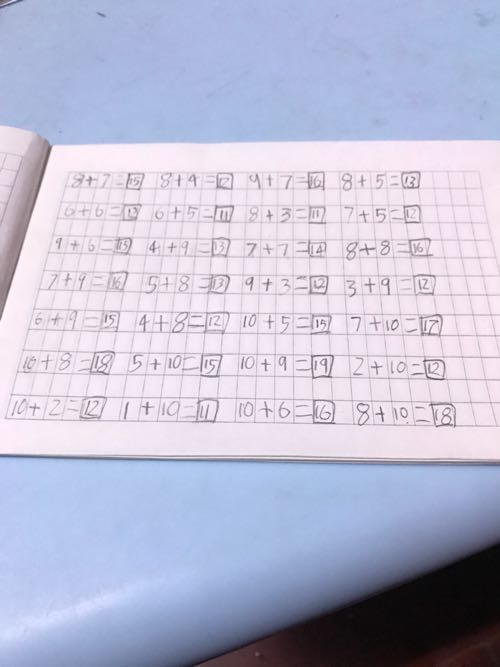 8+7=15 8+4=12 9+7=16 8+5=13
6+6=12 6+5=11 8+3=11 7+5=12
9+6=15 4+9=13 7+7=14 8+8=16
7+9=16 5+8=13 9+3=12 3+9=12
6+9=15 4+8=12 10+5=15 7+10=17
10+8=18 5+10=15 10+9=19 2+10=12
10+2=12 1+10=11 10+6=16 8+10=18